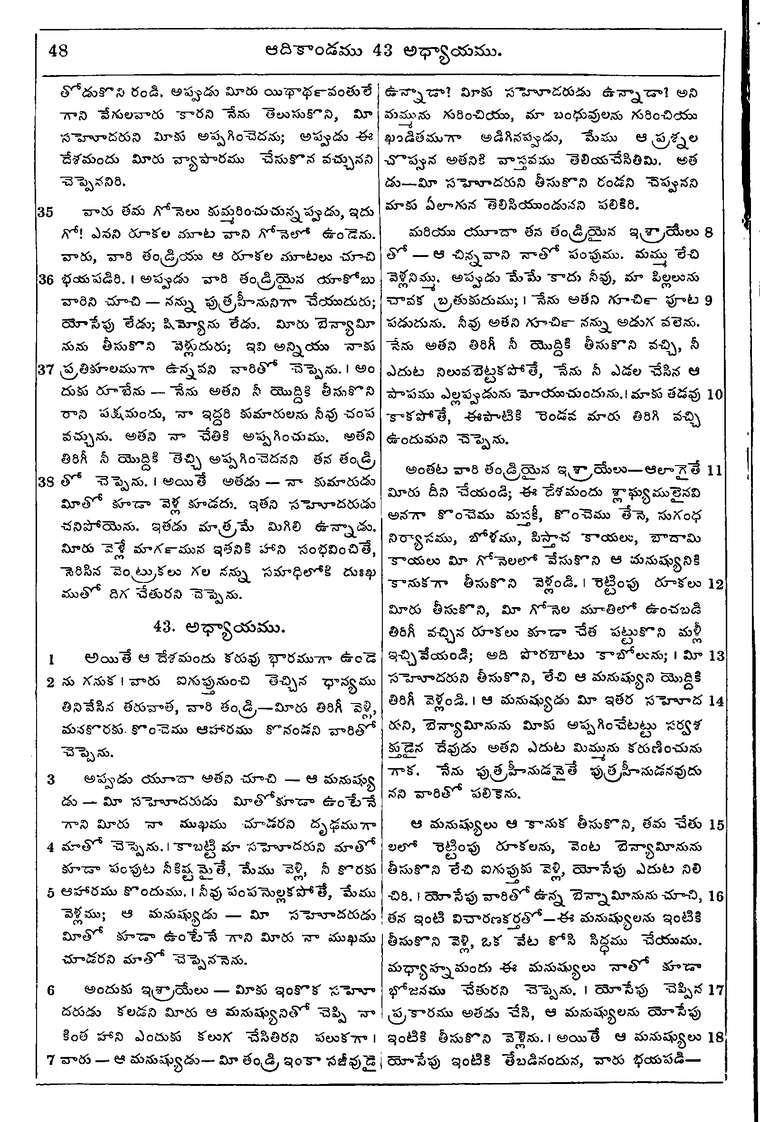 48 ఆదికాండము 43 అధ్యాయము.
తోడుకొని రండి. అప్పుడు మీరు యిథార్థవంతులే
గాని వేగులవారు కారని నేను తెలుసుకొని, మీ
సహెూదరుని మీకు అప్పగించెదను; అప్పుడు ఈ
దేశమందు మీరు వ్యాపారము చేసుకొన వచ్చునని
చెప్పెననిరి.
35 వారు తమ గోనెలు కుమ్మరించుచున్నప్పుడు, ఇదు
గో! ఎనని రూకల మూట వాని గోనెలో ఉండెను.
వారు, వారి తండ్రియు ఆ రూకల మూటలు చూచి
36 భయపడిరి. । అప్పుడు వారి తండ్రియైన యాకోబు
వారిని చూచి — నన్ను పుత్రహీనునిగా చేయుదురు;
యోసేపు లేడు; షిమ్యోను లేడు. మీరు బెన్యామీ
నును తీసుకొని వెళ్లుదురు; ఇవి అన్నియు నాకు
37 ప్రతికూలముగా ఉన్నవని వారితో చెప్పెను. । అం
దుకు రూబేను — నేను అతని నీ యొద్దికి తీసుకొని
రాని పక్షమందు, నా ఇద్దరి కుమారులను నీవు చంప
వచ్చును. అతని నా చేతికి అప్పగించుము. అతని
తిరిగీ నీ యొద్దికి తెచ్చి అప్పగించెదనని తన తండ్రి
38 తో చెప్పెను. । అయితే అతడు — నా కుమారుడు
మీతో కూడా వెళ్ల కూడదు. ఇతని సహెూదరుడు
చనిపోయెను. ఇతడు మాత్రమే మిగిలి ఉన్నాడు.
మీరు వెళ్లే మార్గమున ఇతనికి హాని సంభవించితే,
నెరిసిన వెంట్రుకలు గల నన్ను సమాధిలోకి దుఃఖ
ముతో దిగ చేతురని చెప్పెను.
43. అధ్యాయము.
1 అయితే ఆ దేశమందు కరువు భారముగా ఉండె
2 ను గనుక । వారు ఐగుప్తునుంచి తెచ్చిన ధాన్యము
తినివేసిన తరువాత, వారి తండ్రి—మీరు తిరిగీ వెళ్లి,
మనకొరకు కొంచెము ఆహారము కొనండని వారితో
చెప్పెను.
3 అప్పుడు యూదా అతని చూచి — ఆ మనుష్యు
డు — మీ సహెూదరుడు మీతోకూడా ఉంటేనే
గాని మీరు నా ముఖము చూడరని దృఢముగా
4 మాతో చెప్పెను. । కాబట్టి మా సహెూదరుని మాతో
కూడా పంపుట నీకిష్టమైతే, మేము వెళ్లి, నీ కొరకు
5 ఆహారము కొందుము. । నీవు పంపనొల్లకపోతే, మేము
వెళ్లము; ఆ మనుష్యుడు — మీ సహెూదరుడు
మీతో కూడా ఉంటేనే గాని మీరు నా ముఖము
చూడరని మాతో చెప్పెననెను.
6 అందుకు ఇశ్రాయేలు — మీకు ఇంకొక సహెూ
దరుడు కలడని మీరు ఆ మనుష్యునితో చెప్పి నా
కింత హాని ఎందుకు కలుగ చేసితిరని పలుకగా ।
7 వారు — ఆ మనుష్యుడు— మీ తండ్రి ఇంకా సజీవుడై
ఉన్నాడా? మీకు సహెూదరుడు ఉన్నాడా? అని
మమ్మును గురించియు, మా బంధువులను గురించియు
ఖండితముగా అడిగినప్పుడు, మేము ఆ ప్రశ్నల
చొప్పున అతనికి వాస్తవము తెలియచేసితిమి. అత
డు—మీ సహెూదరుని తీసుకొని రండని చెప్పునని
మాకు ఏలాగున తెలిసియుండునని పలికిరి.
మరియు యూదా తన తండ్రియైన ఇశ్రాయేలు 8
తో — ఆ చిన్నవాని నాతో పంపుము. మమ్ము లేచి
వెళ్లనిమ్ము. అప్పుడు మేమే కాదు నీవు, మా పిల్లలును
చావక బ్రతుకుదుము; । నేను అతని గూర్చి పూట 9
పడుదును. నీవు అతని గూర్చి నన్ను అడుగ వలెను.
నేను అతని తిరిగీ నీ యొద్దికి తీసుకొని వచ్చి, నీ
ఎదుట నిలువబెట్టకపోతే, నేను నీ ఎడల చేసిన ఆ
పాపము ఎల్లప్పుడును మోయుచుందును. । మాకు తడవు 10
కాకపోతే, ఈపాటికి రెండవ మారు తిరిగి వచ్చి
ఉందుమని చెప్పెను.
అంతట వారి తండ్రియైన ఇశ్రాయేలు—ఆలాగైతే 11
మీరు దీని చేయండి; ఈ దేశమందు శ్లాఘ్యములైనవి
అనగా కొంచెము మస్తకీ, కొంచెము తేనె, సుగంధ
నిర్యాసము, బోళము, పిస్తాచ కాయలు, బాదామి
కాయలు మీ గోనెలలో వేసుకొని ఆ మనుష్యునికి
కానుకగా తీసుకొని వెళ్లండి. । రెట్టింపు రూకలు 12
మీరు తీసుకొని, మీ గోనెల మూతిలో ఉంచబడి
తిరిగీ వచ్చిన రూకలు కూడా చేత పట్టుకొని మళ్లీ
ఇచ్చివేయండి; అది పొరబాటు కాబోలును; । మీ 13
సహెూదరుని తీసుకొని, లేచి ఆ మనుష్యుని యొద్దికి
తిరిగీ వెళ్లండి. । ఆ మనుష్యుడు మీ ఇతర సహెూద 14
రుని, బెన్యామీనును మీకు అప్పగించేటట్టు సర్వశ
క్తుడైన దేవుడు అతని ఎదుట మిమ్మును కరుణించును
గాక. నేను పుత్రహీనుడనైతే పుత్రహీనుడనవుదు
నని వారితో పలికెను.
ఆ మనుష్యులు ఆ కానుక తీసుకొని, తమ చేతు 15
లలో రెట్టింపు రూకలను, వెంట బెన్యామీనును
తీసుకొని లేచి ఐగుప్తుకు వెళ్లి, యోసేపు ఎదుట నిలి
చిరి. । యోసేపు వారితో ఉన్న బెన్యామీనును చూచి, 16
తన ఇంటి విచారణకర్తతో—ఈ మనుష్యులను ఇంటికి
తీసుకొని వెళ్లి, ఒక వేట కోసి సిద్ధము చేయుము.
మధ్యాహ్నమందు ఈ మనుష్యులు నాతో కూడా
భోజనము చేతురని చెప్పెను. । యోసేపు చెప్పిన 17
ప్రకారము అతడు చేసి, ఆ మనుష్యులను యోసేపు
ఇంటికి తీసుకొని వెళ్లెను. । అయితే ఆ మనుష్యులు 18
యోసేపు ఇంటికి తేబడినందున, వారు భయపడి—